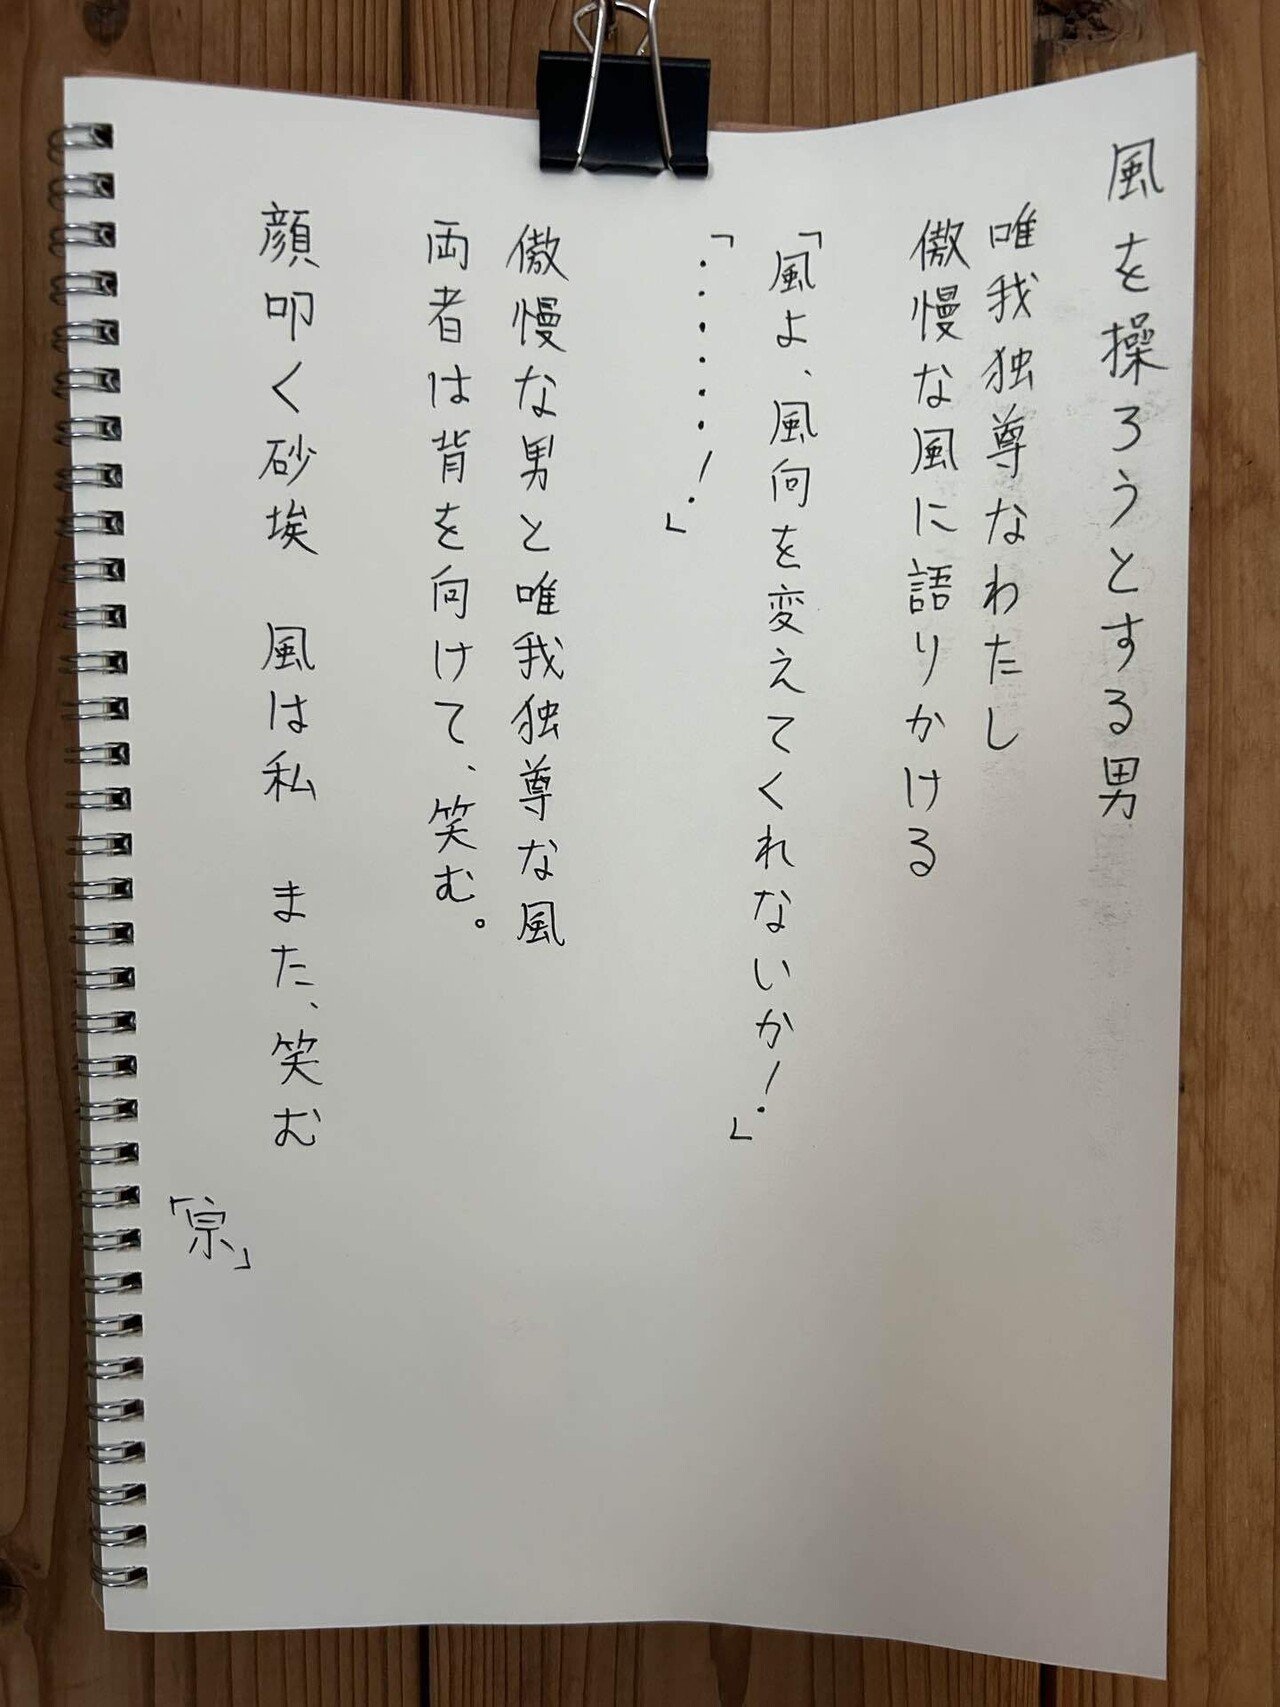 風を操ろうとする男
唯我独尊なわたし
傲慢な風に語りかける
「風よ、風向を変えてくれないか！」
「・・・・・！」
傲慢な男と唯我独尊な風
両者は背を向けて、笑む。
顔叩く砂埃　風は私　また、笑む
「宗」